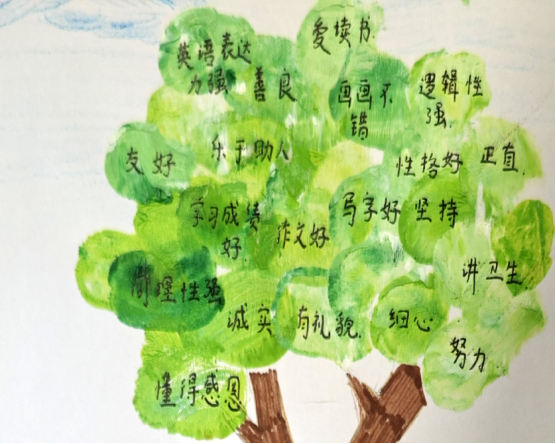 爱读书
英语表达
力强
善良
画画不
错
逻辑性
强
友好
乐于助人
性格好
正直
学习成绩
好
作文好
写字好
坚持
讲卫生
理性强
诚实
有礼貌
细心
努力
懂得感恩